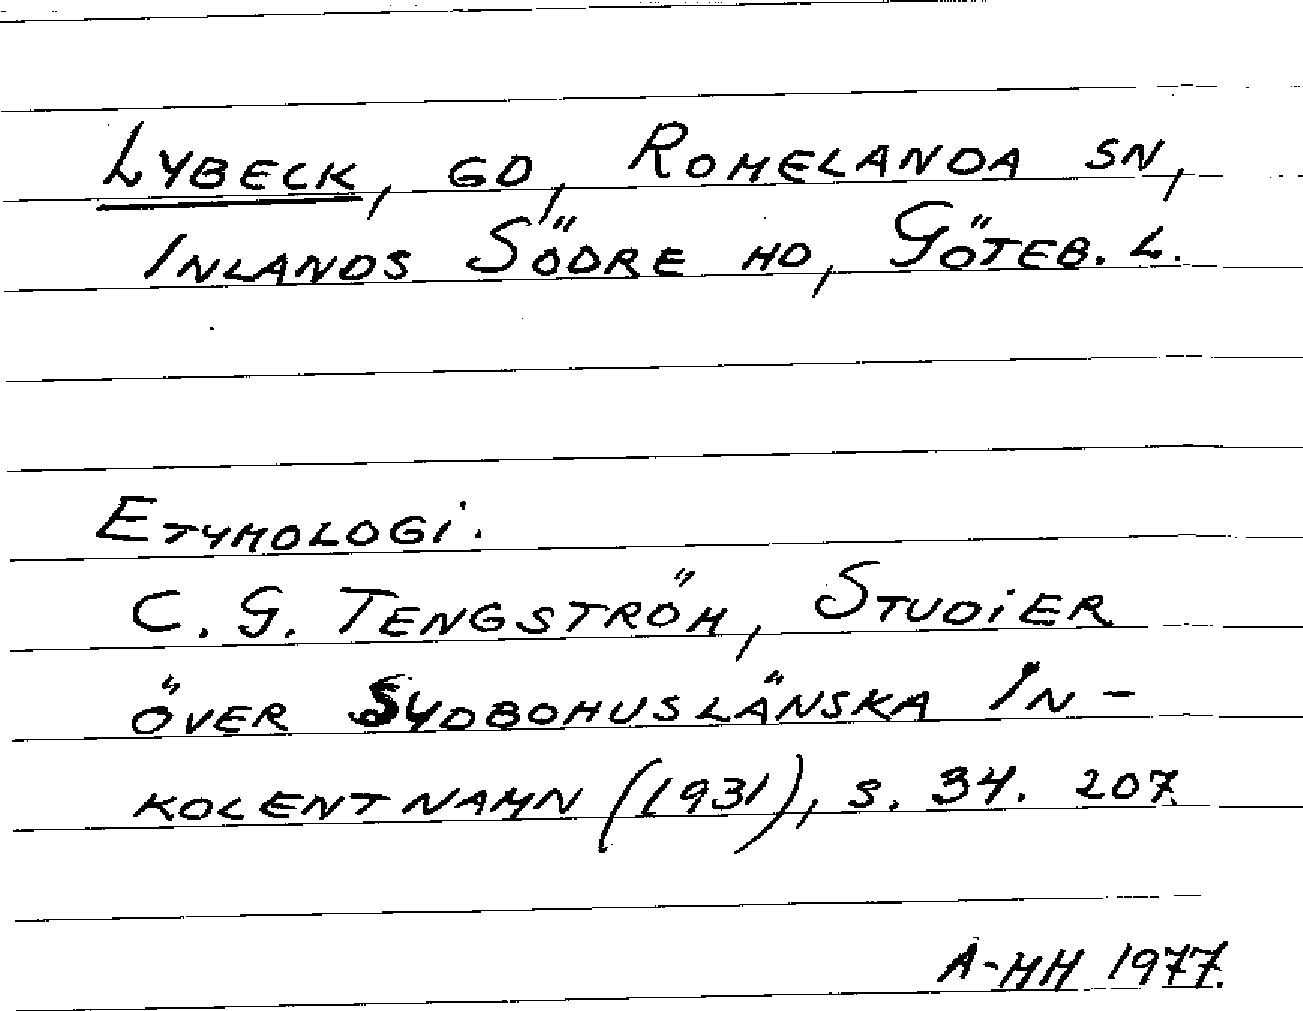 LYBECK, GD, ROMELANDA SN,
INLANDS SÖDRE HD, GÖTEB. L.
ETYMOLOGI.
C. G. TENGSTRÖM, STUDIER
ÖVER SYDBOHUSLÄNSKA IN-
KOLENTNAMN (1931), S. 34. 207.
A-MH 1977.